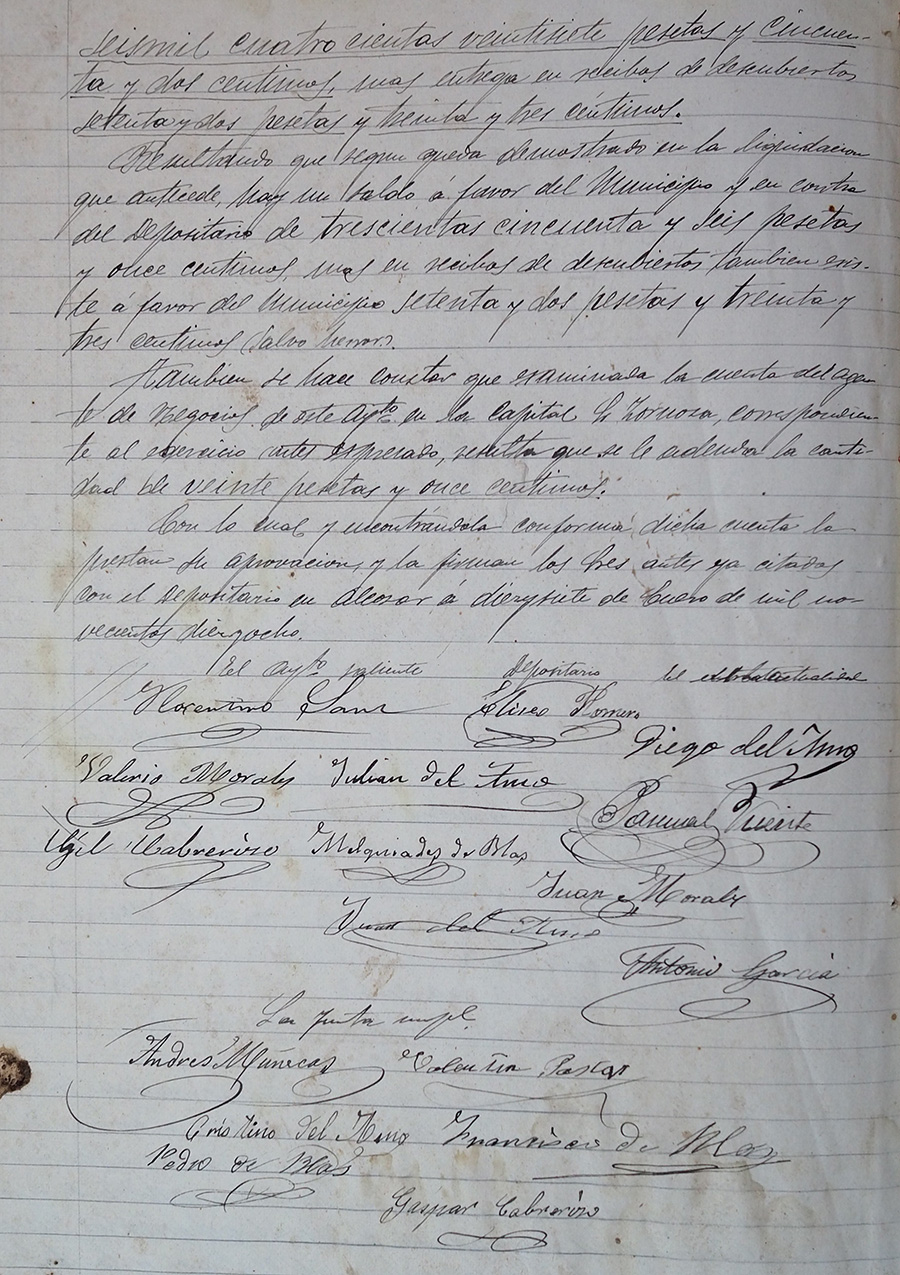 seismil cuatrocientas veintisiete pesetas y cincuen-
ta y dos centimos, mas entrega en recibos de descubiertos
setenta y dos pesetas y treinta y tres céntimos.
Resultando que segun queda demostrado en la liquidacion
que antecede, hay un saldo á favor del Municipio y en contra
del Depositario de trescientas cincuenta y seis pesetas
y once centimos mas en recibos de descubiertos tambien exis-
te á favor del Municipio setenta y dos pesetas y treinta y
tres centimos (salvo herror).
Tambien se hace constar que examinada la cuenta del agen-
te de Negocios de este Aytº en la Capital Zornosa, correspondien-
te al egercicio antes espresado, resulta que se le adeuda la canti-
dad de veinte pesetas y once centimos.
Con lo cual y encontrándola conforme dicha cuenta la
prestan su aprovacion, y la firman los tres antes ya citados
con el Depositario en Alcozar á diezysiete de Enero de mil no-
vecientos diezyocho.
El Aytº saliente Depositario El
Florentino Sanz Eliseo Romero
Diego del Amo
Valerio Morales Julian del Amo
Pascual Vicente
Cabrerizo Melquiades de Blas
Juan Morales
Juan del Amo
Antonio Garcia
La Junta mupl.
Andres Muñecas Valentin Pastor
Cristino del Amo Francisco de Blas
Pedro de Blas
Gaspar Cabrerizo